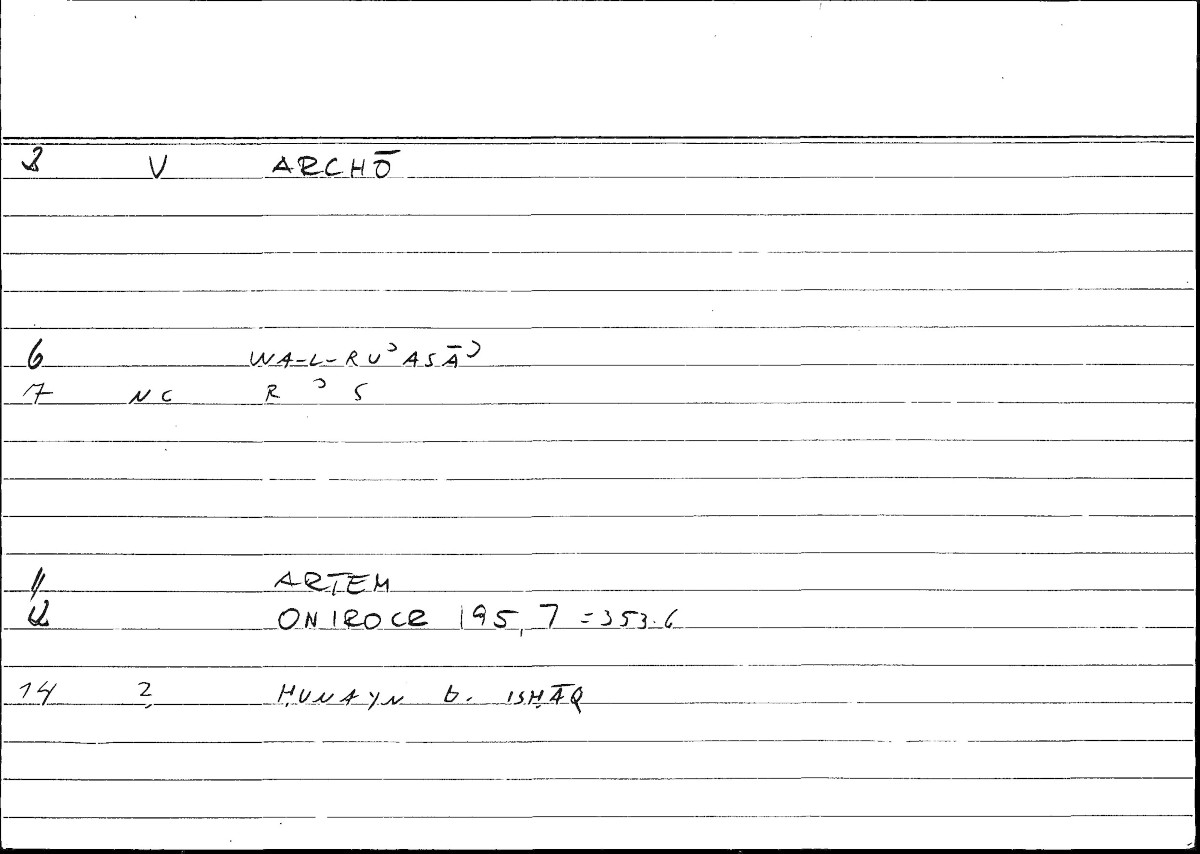 V ARCHŌ
6 WA-L-RUʾASĀʾ
7 NC R ʾ S
11 ARTEM
12 ONIROCR 195,7 =353.6
14 2, ḤUNAYN b. ISḤĀQ